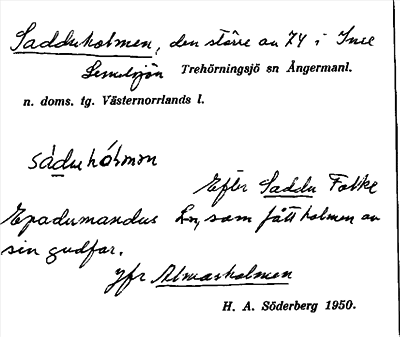 Sadduholmen, den större av 2 i Inre
Lemesjön Trehörningsjö sn Ångermanl.
n. doms. tg. Västernorrlands l.
sàduhólmɒn
Efter Saddu Folke
Epadumandus Ln, som fått holmen av
sin gudfar.
Jfr Almarholmen
H. A. Söderberg 1950.